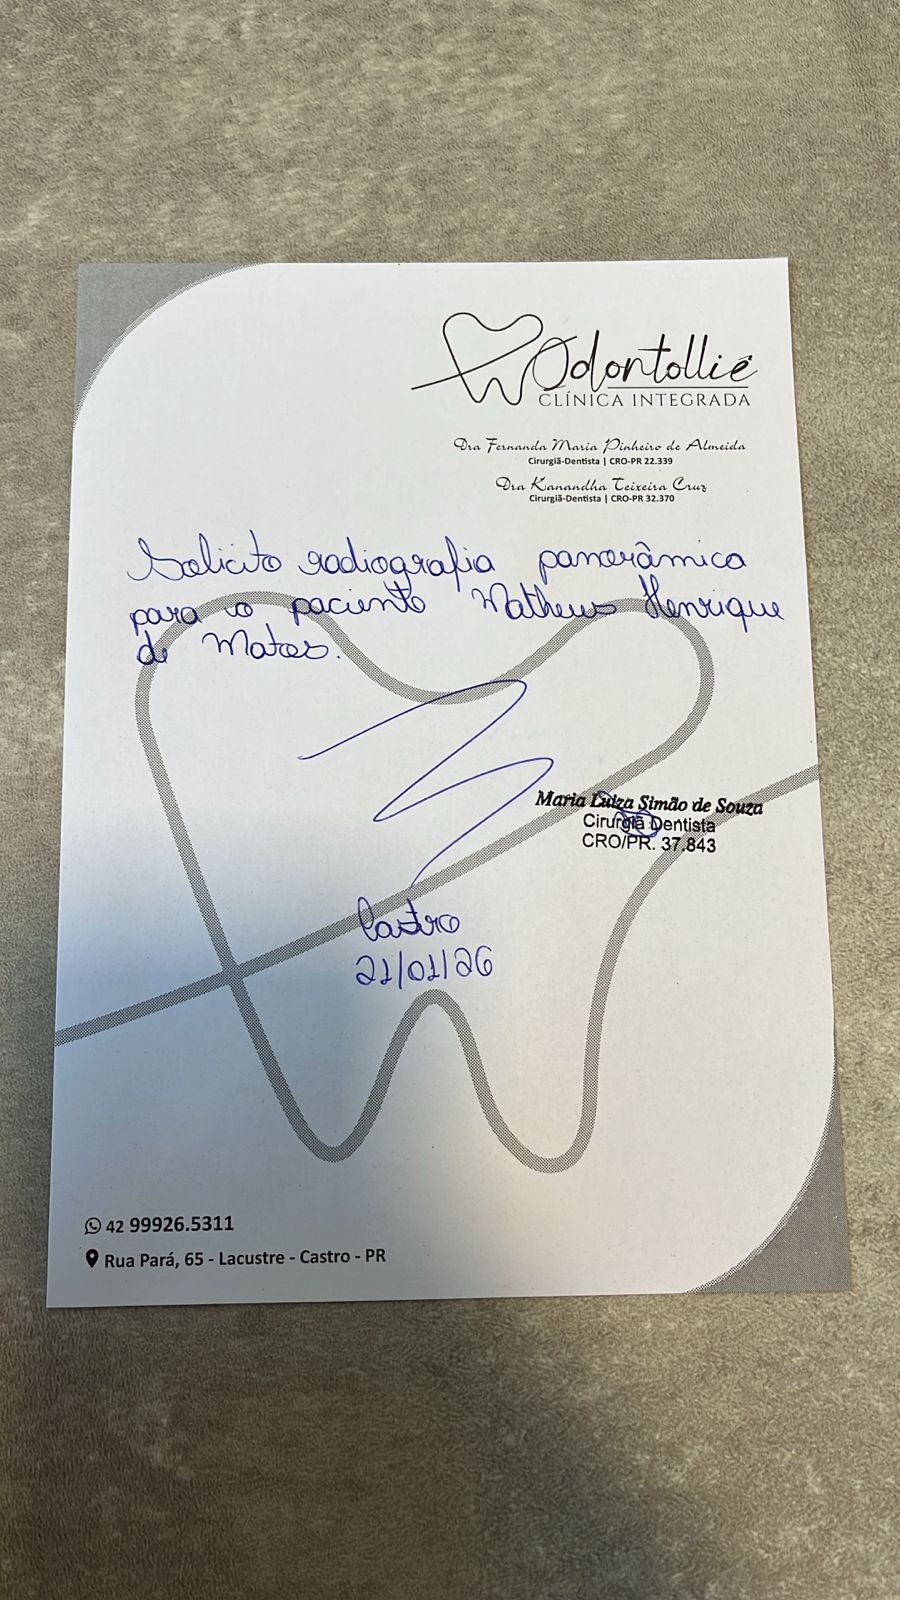 Odontolliê
CLÍNICA INTEGRADA
Dra Fernanda Maria Pinheiro de Almeida
Cirurgiã-Dentista | CRO-PR 22.339
Dra Kanandha Teixeira Cruz
Cirurgiã-Dentista | CRO-PR 32.370
Solicito radiografia panorâmica
para o paciente Matheus Henrique
de Matos.
Maria Luiza Simão de Souza
Cirurgiã Dentista
CRO/PR. 37.843
Castro
21/01/26
42 99926.5311
Rua Pará, 65 - Lacustre - Castro - PR